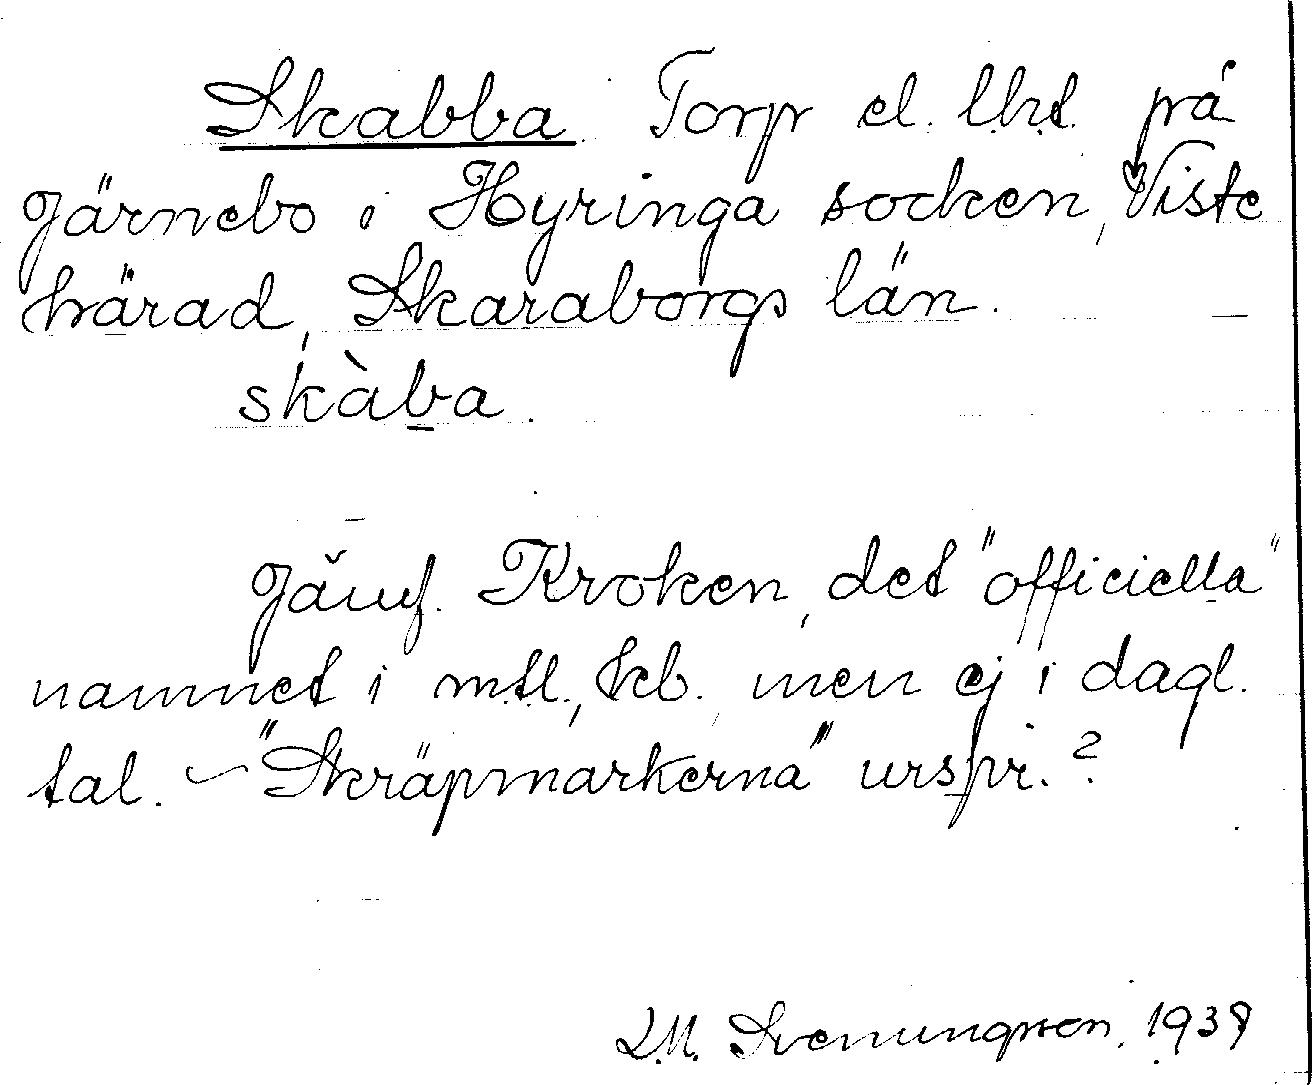 Skabba. Torp el. lht. på
Järnebo i Hyringa socken, Viste
härad, Skaraborgs län.
skàba.
Jämf. Kroken, det "officiella"
namnet i mtl., kb. men ej i dagl.
tal. – "Skräpmarkerna" urspr.?
D.M. Svenungsson. 1938